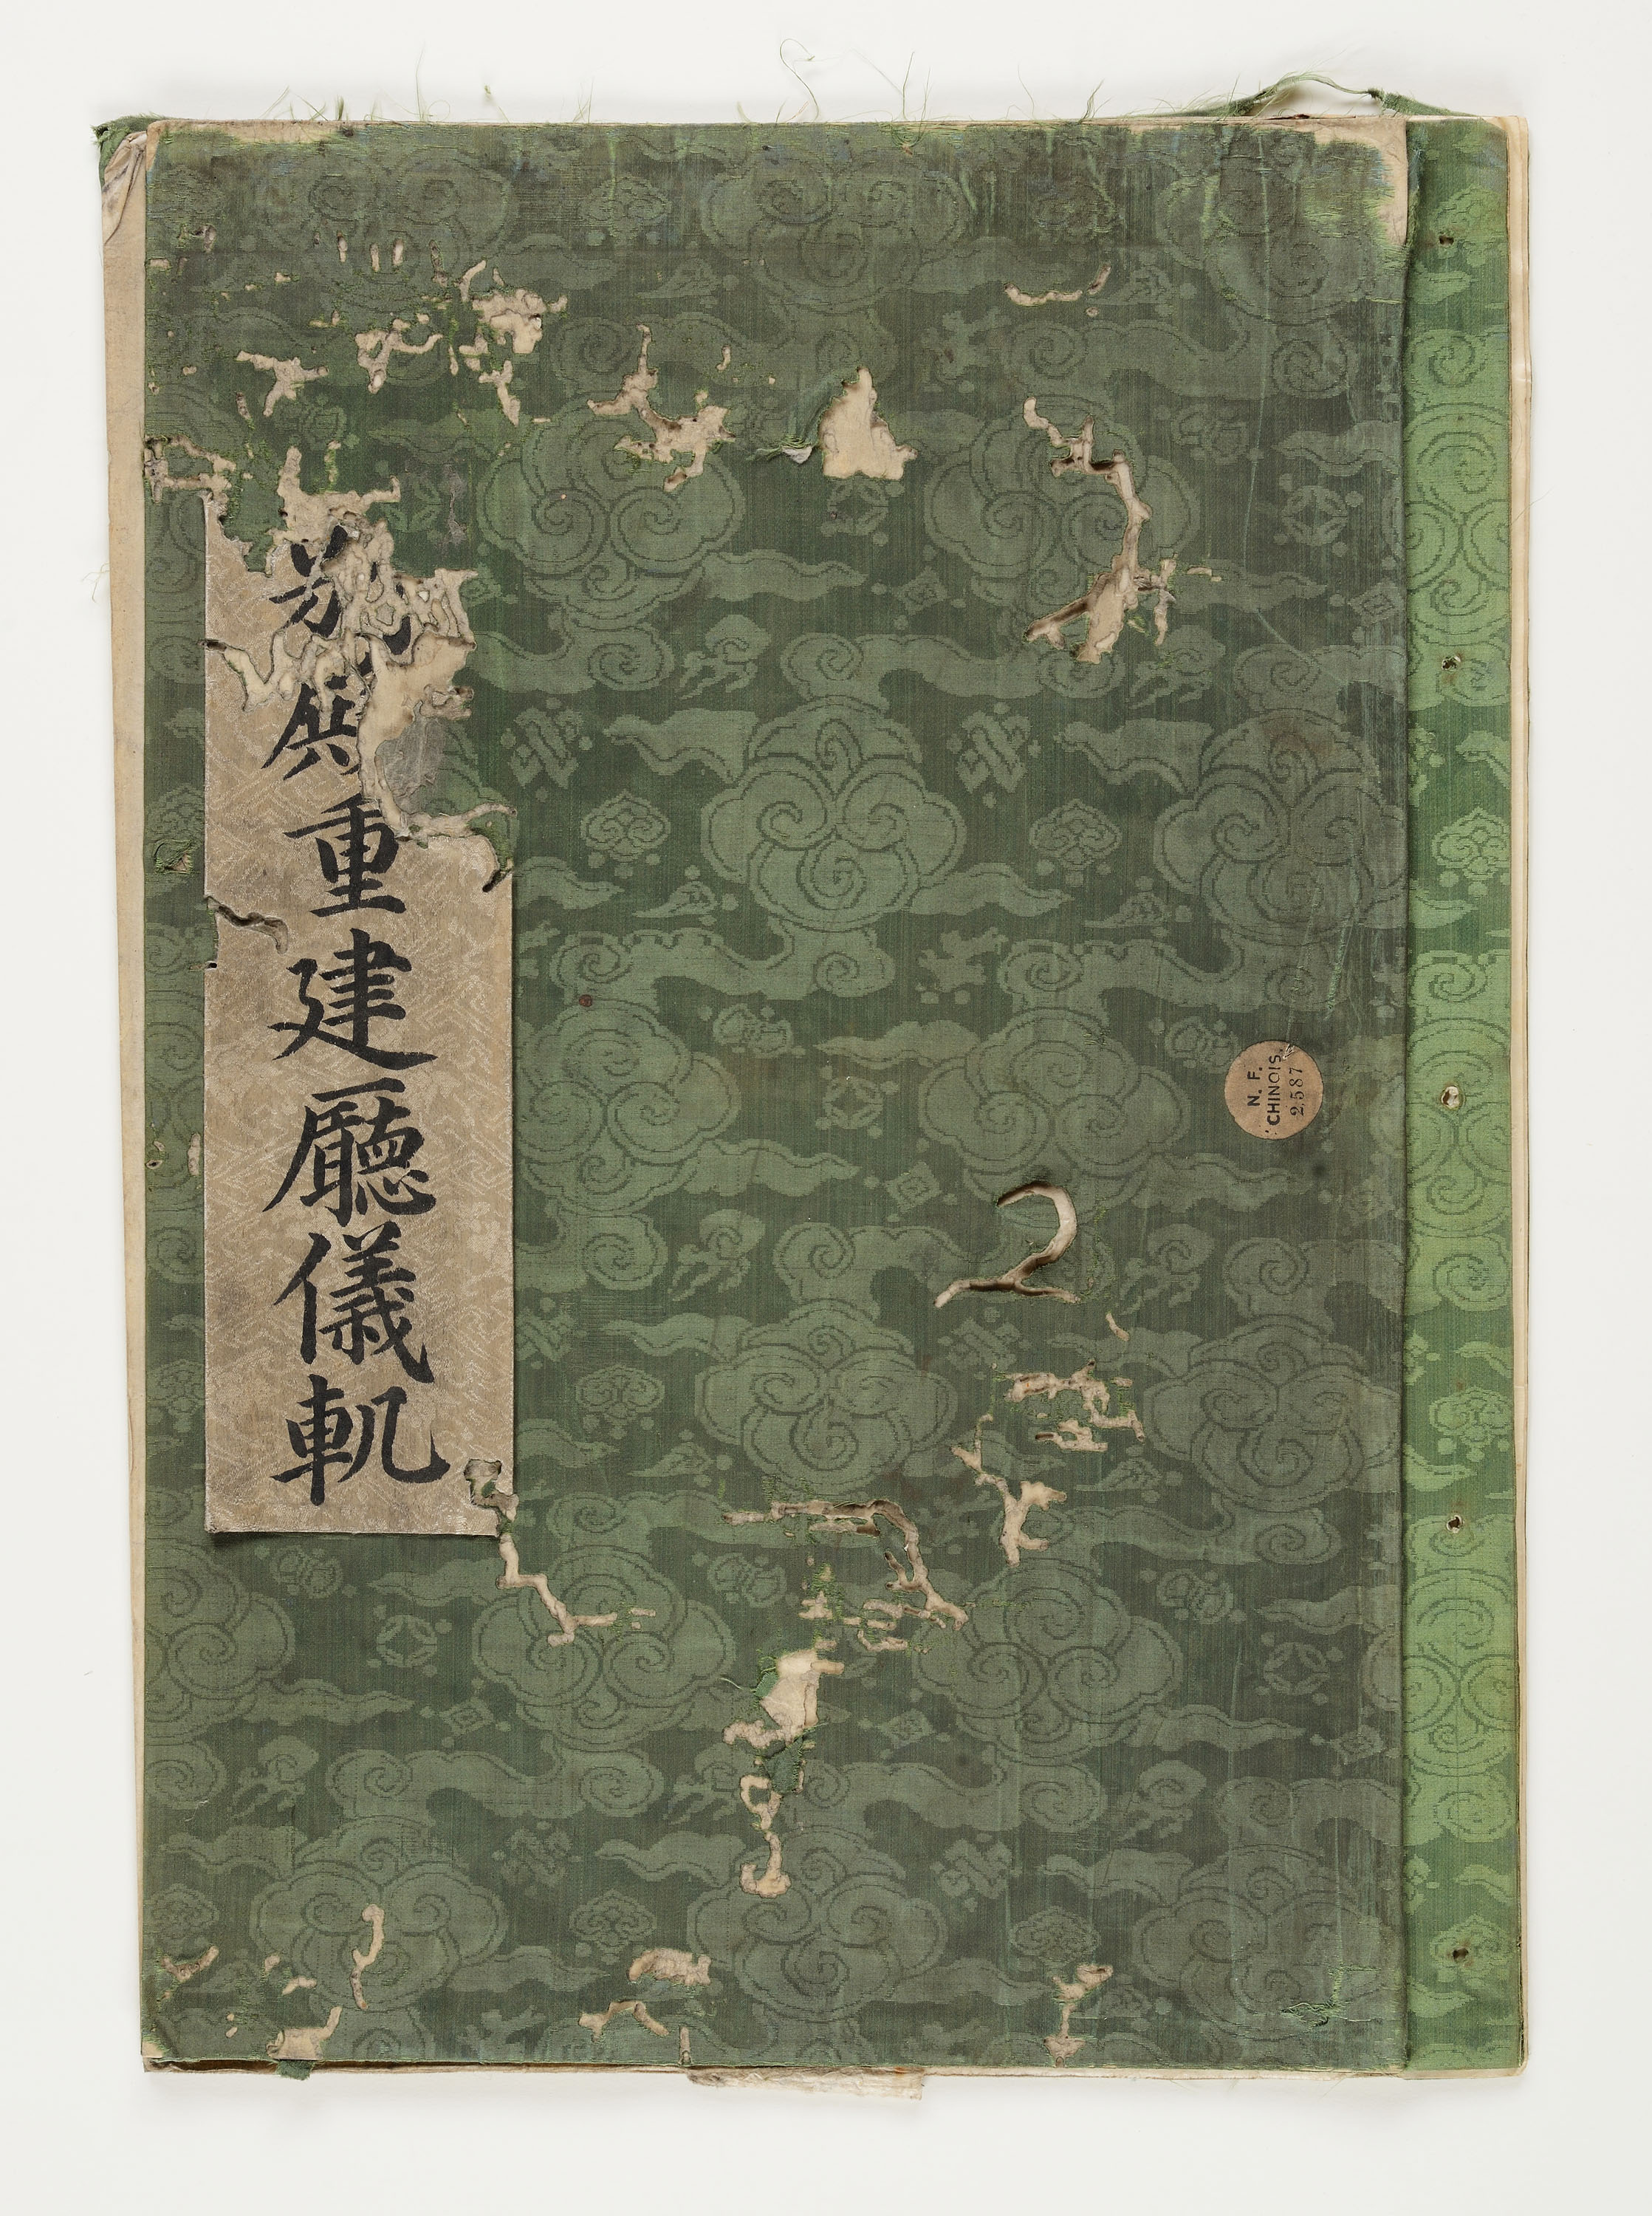 別殿重建廳儀軌
N. F.
CHINOIS.
2587